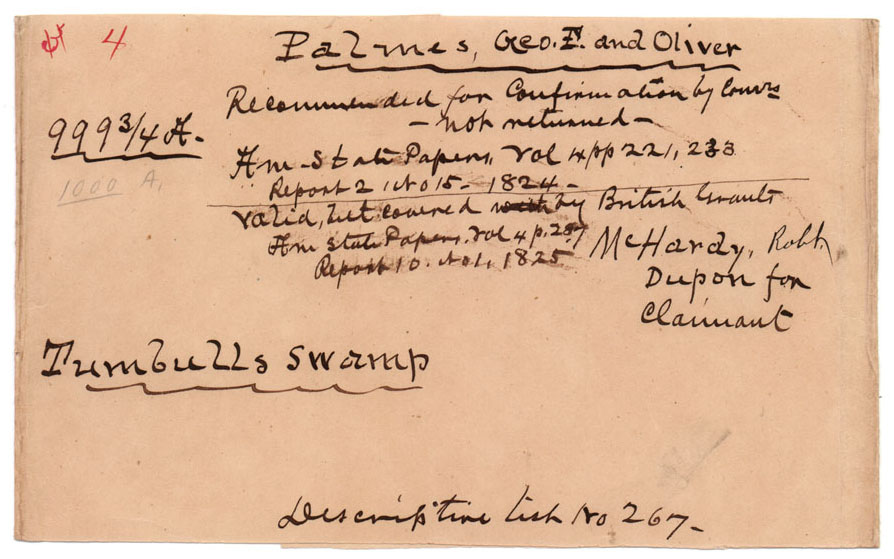 4
Palmes, Geo. F. and Oliver
Recommended for Confirmation by Comrs
999 3/4 A.
- Not returned -
1000 A.
Am - State Papers, Vol 4 pp 221, 233
Report 2, No 15 - 1824 -
Valid, but covered with by British Grants
Am State Papers. Vol 4 p. 287
McHardy, Robt,
Report 10. No 1, 1825
Dupon for
Claimant
Turnbulls Swamp
Descriptive List No 267 -